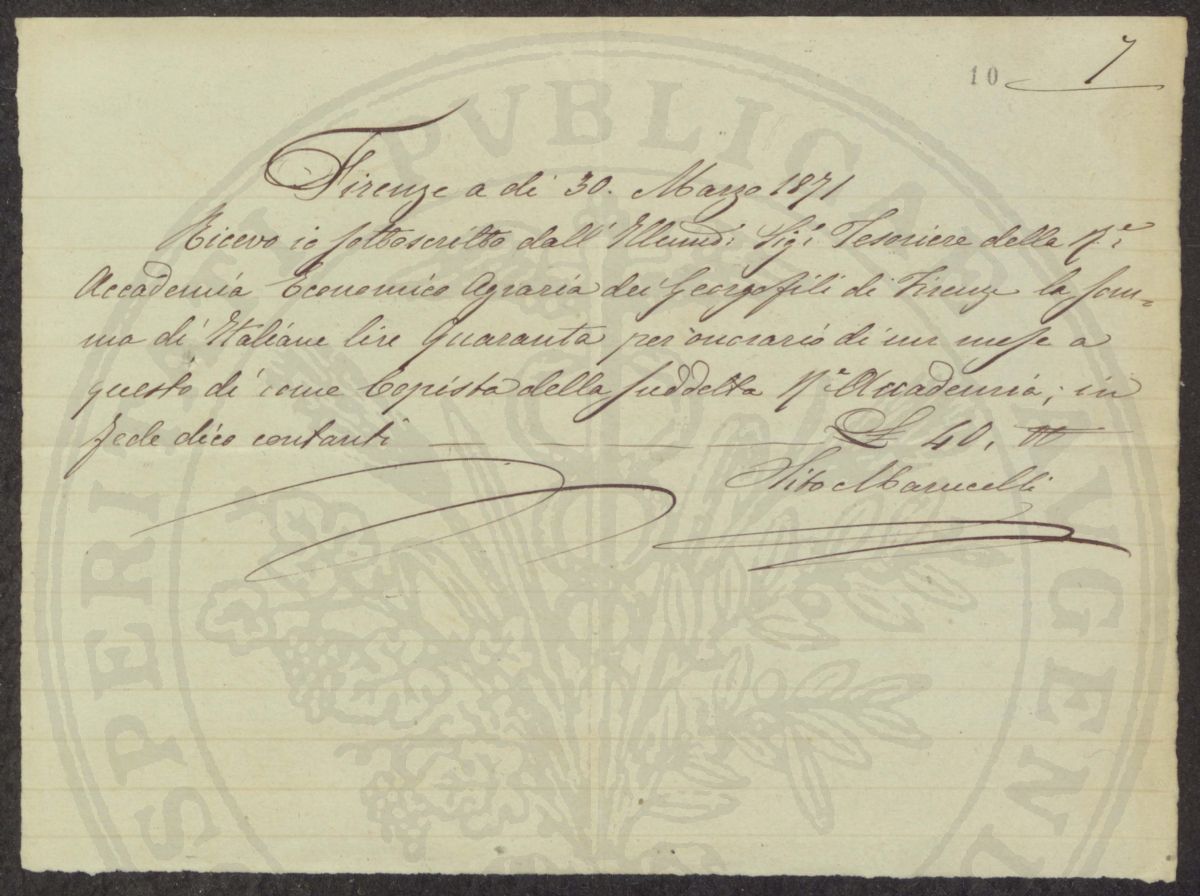 10 7
PVBLICAE
PROSPERITATI
AVGENDAE
Firenze a dì 30. Marzo 1871
Ricevo io sottoscritto dall' Sig.r Tesoriere della R.e
Accademia Economico Agraria dei Georgofili di Firenze la som=
ma di Italiane lire Quaranta per onorario di un mese a
questo dì come Copista della suddetta R.e Accademia; in
fede dico contanti — — £ 40, "
Marucelli